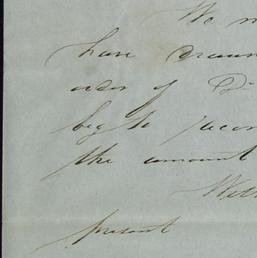 We
have drawn
order of
beg to
the amount
With
present